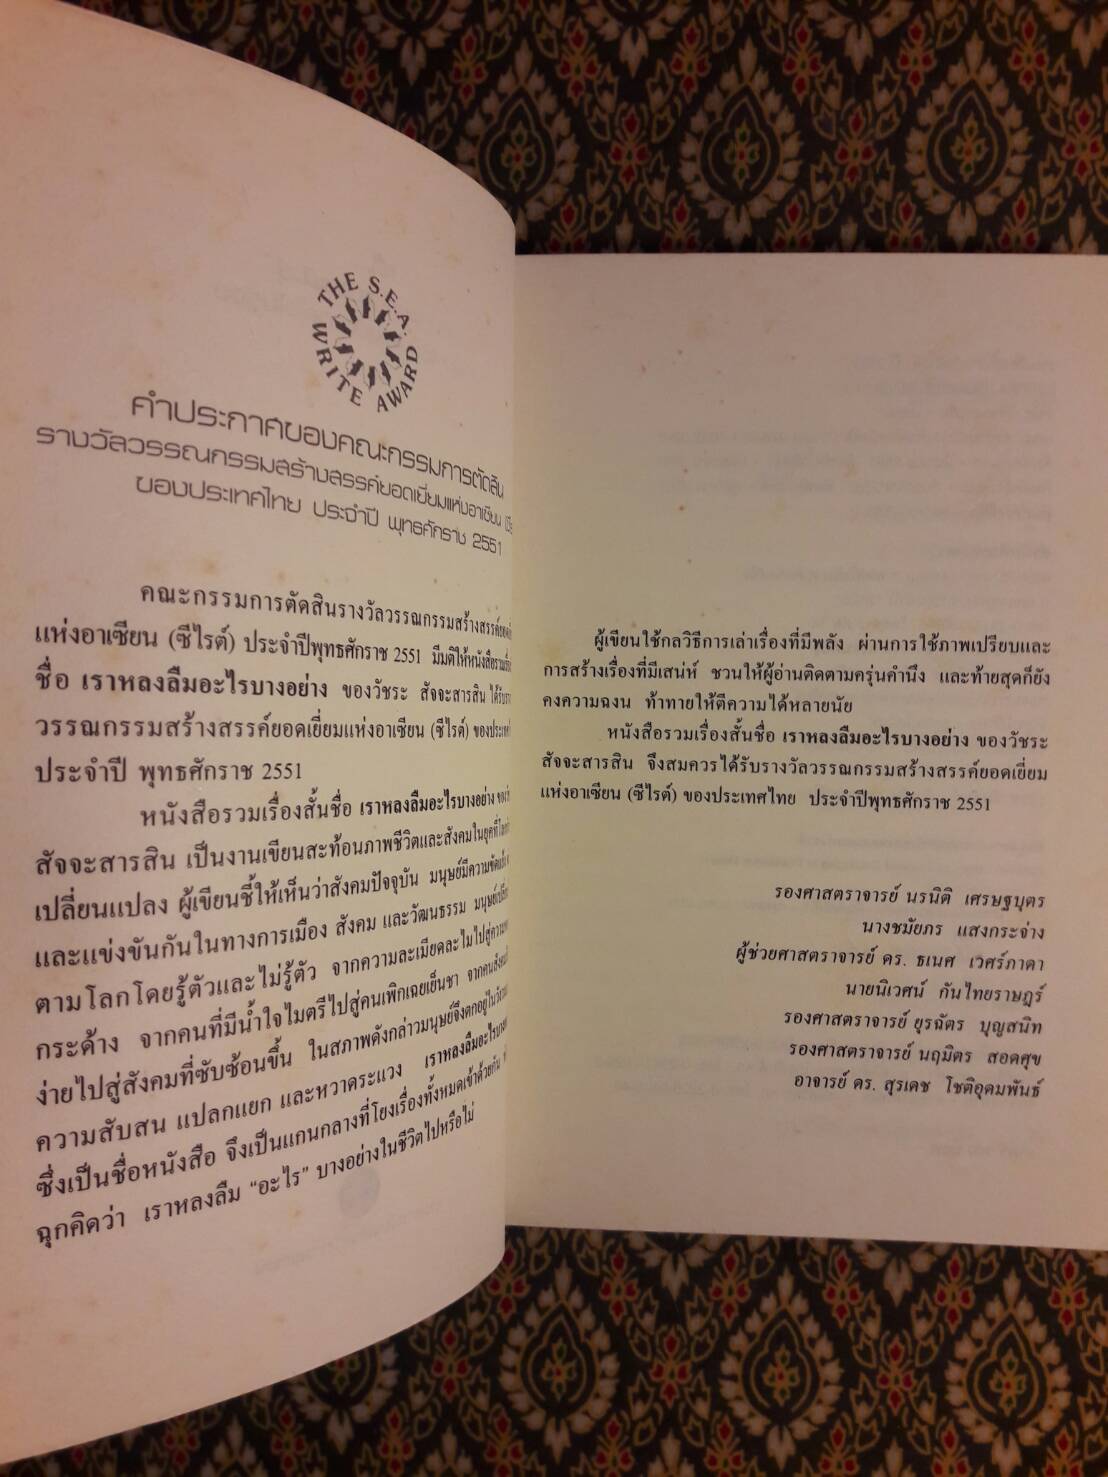 THE S.E.A. WRITE AWARD
คำประกาศของคณะกรรมการตัดสิน
รางวัลวรรณกรรมสร้างสรรค์ยอดเยี่ยมแห่งอาเซียน
ของประเทศไทย ประจำปี พุทธศักราช 2551
คณะกรรมการตัดสินรางวัลวรรณกรรมสร้างสรรค์
แห่งอาเซียน (ซีไรต์) ประจำปีพุทธศักราช 2551 มีมติให้หนังสือ
ชื่อ เราหลงลืมอะไรบางอย่าง ของวัชระ สัจจะสารสิน ได้รับ
วรรณกรรมสร้างสรรค์ยอดเยี่ยมแห่งอาเซียน (ซีไรต์) ของ
ประจำปี พุทธศักราช 2551
หนังสือรวมเรื่องสั้นชื่อ เราหลงลืมอะไรบางอย่าง
สัจจะสารสิน เป็นงานเขียนสะท้อนภาพชีวิตและสังคมในยุคที่
เปลี่ยนแปลง ผู้เขียนชี้ให้เห็นว่าสังคมปัจจุบัน มนุษย์มีความขัดแย้ง
และแข่งขันกันในทางการเมือง สังคม และวัฒนธรรม
ตามโลกโดยรู้ตัวและไม่รู้ตัว จากความละเมียดละไมไปสู่ความ
กระด้าง จากคนที่มีน้ำใจไมตรีไปสู่คนเพิกเฉยเย็นชา
ง่ายไปสู่สังคมที่ซับซ้อนขึ้น ในสภาพดังกล่าวมนุษย์จึงตกอยู่ใน
ความสับสน แปลกแยก และหวาดระแวง
ซึ่งเป็นชื่อหนังสือ จึงเป็นแกนกลางที่โยงเรื่องทั้งหมดเข้าด้วยกัน
ฉุกคิดว่า เราหลงลืม “อะไร” บางอย่างในชีวิตไปหรือไม่
ผู้เขียนใช้กลวิธีการเล่าเรื่องที่มีพลัง ผ่านการใช้ภาพเปรียบและ
การสร้างเรื่องที่มีเสน่ห์ ชวนให้ผู้อ่านติดตามครุ่นคำนึง และท้ายสุดก็ยัง
คงความฉงน ท้าทายให้ตีความได้หลายนัย
หนังสือรวมเรื่องสั้นชื่อ เราหลงลืมอะไรบางอย่าง ของวัชระ
สัจจะสารสิน จึงสมควรได้รับรางวัลวรรณกรรมสร้างสรรค์ยอดเยี่ยม
แห่งอาเซียน (ซีไรต์) ของประเทศไทย ประจำปีพุทธศักราช 2551
รองศาสตราจารย์ นรนิติ เศรษฐบุตร
นางชมัยภร แสงกระจ่าง
ผู้ช่วยศาสตราจารย์ ดร. ธเนศ เวศร์ภาดา
นายนิเวศน์ กันไทยราษฎร์
รองศาสตราจารย์ ยุรฉัตร บุญสนิท
รองศาสตราจารย์ นฤมิตร สอดศุข
อาจารย์ ดร. สุรเดช โชติอุดมพันธ์